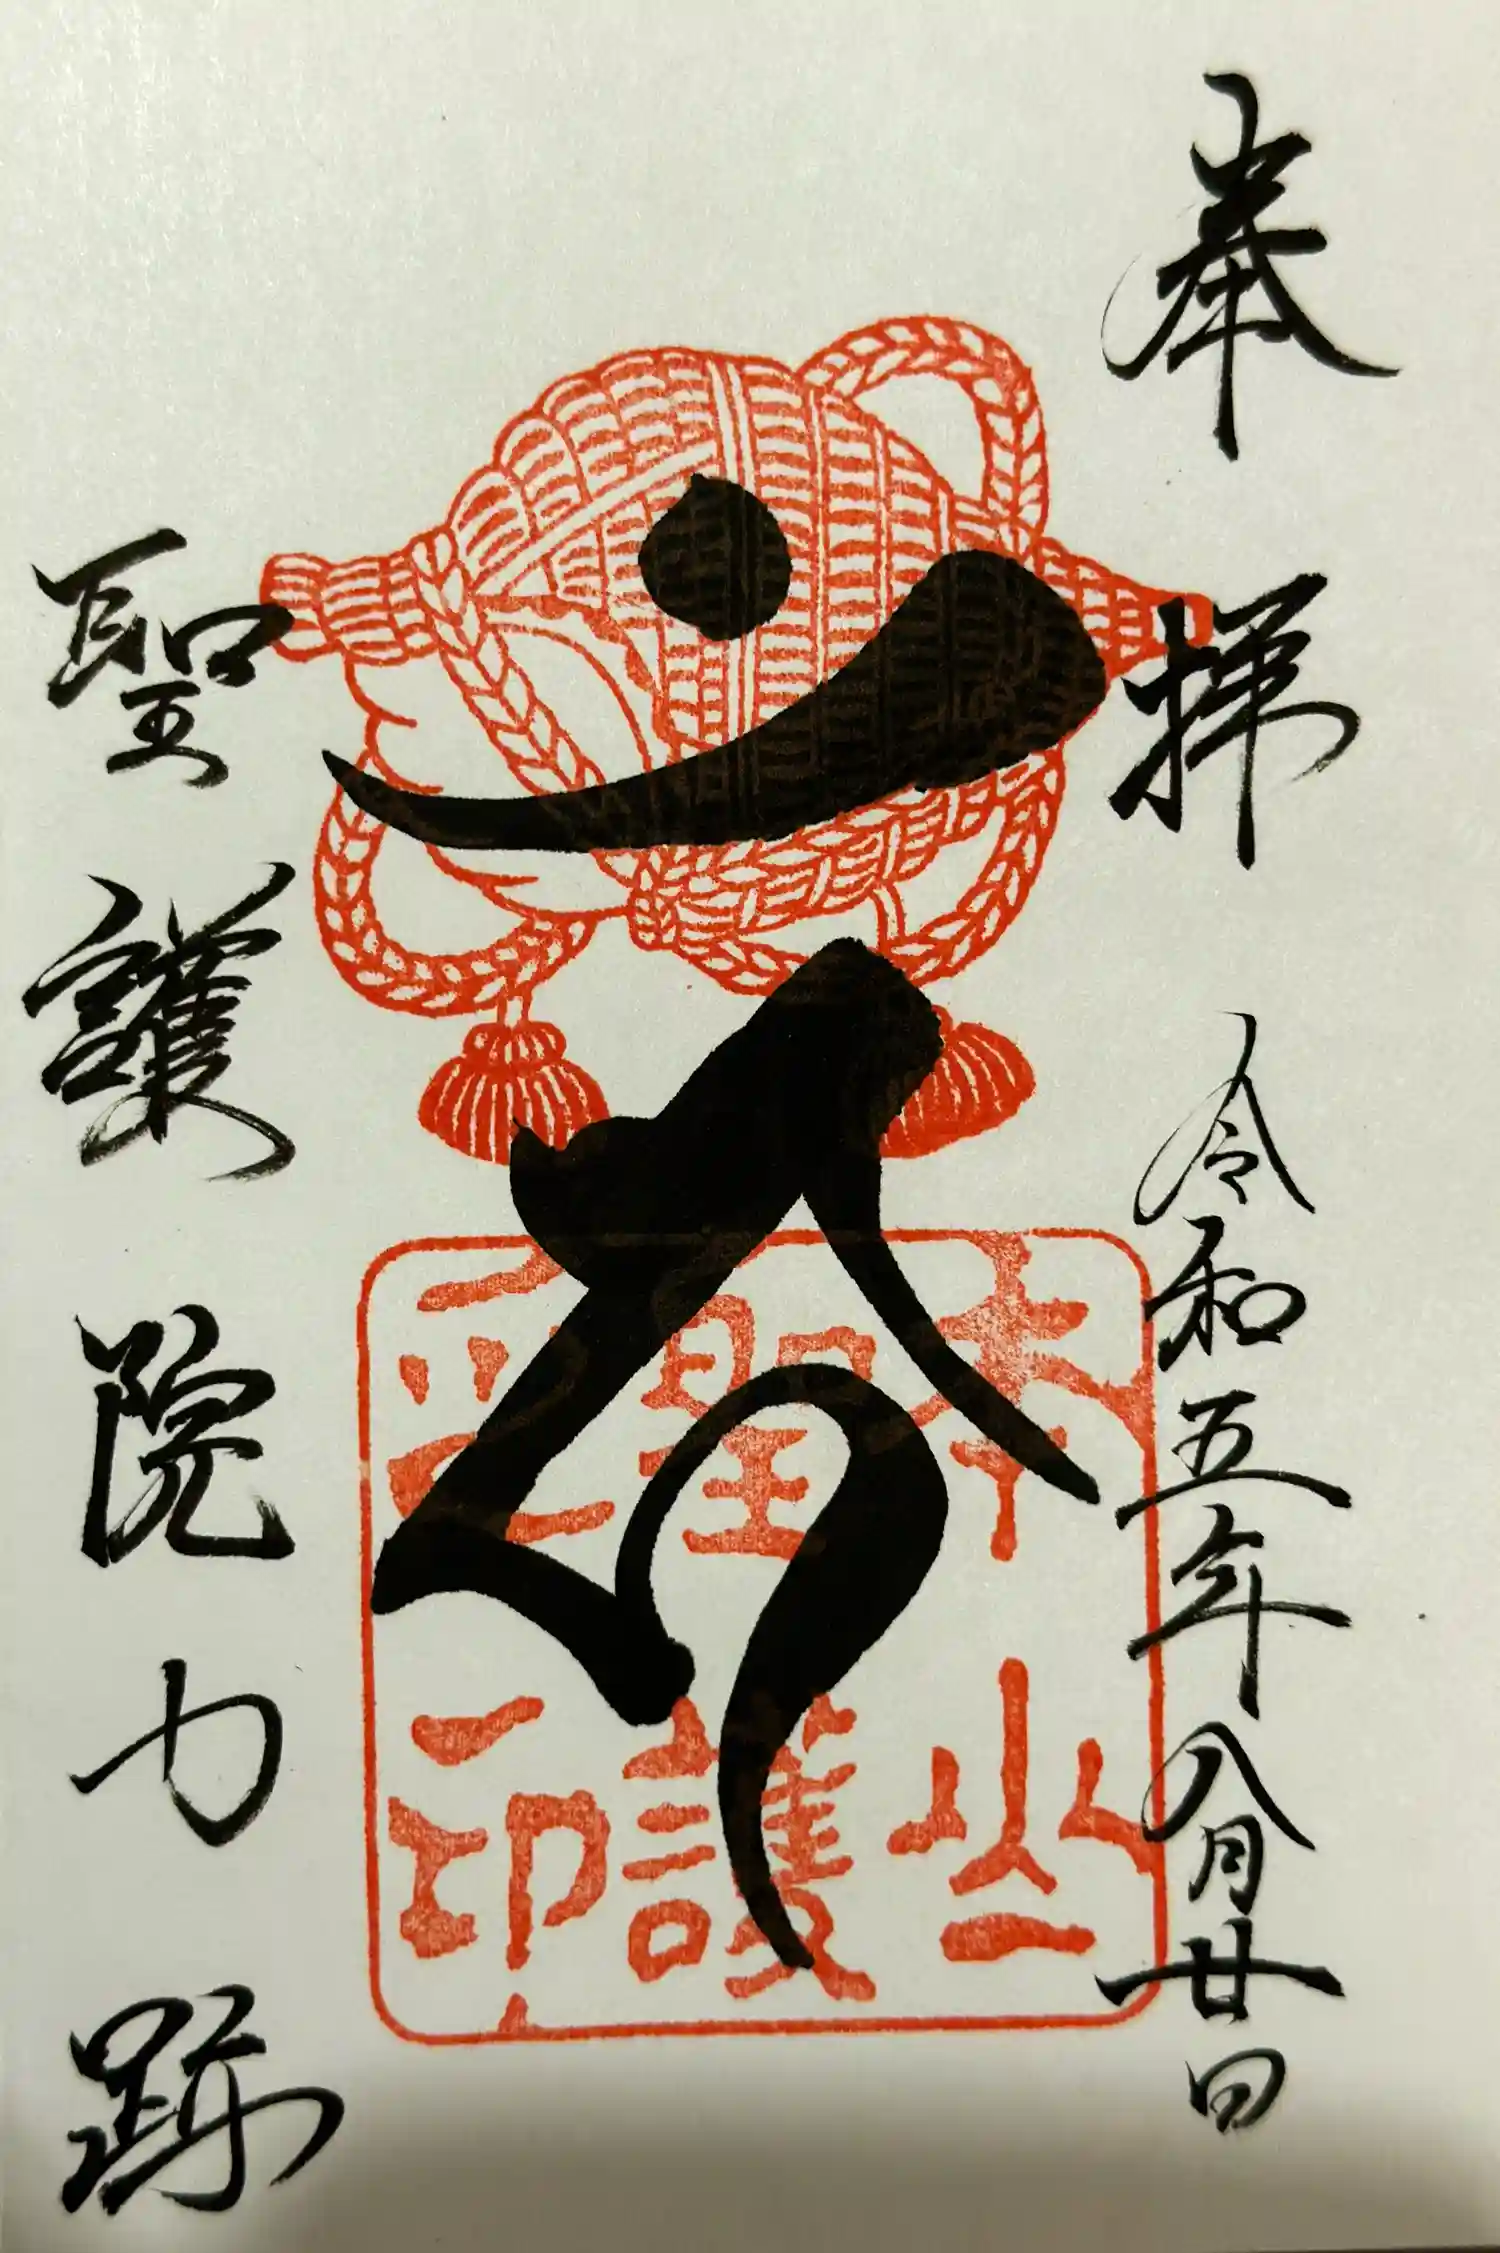 奉拝 令和五年八月廿日
本山
聖護
聖護院門跡